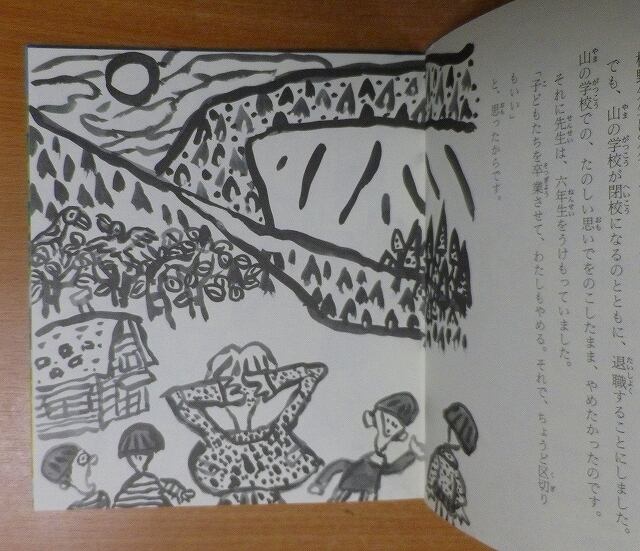 でも、山の学校が閉校になるのとともに、退職することにしました。
山の学校での、たのしい思いでをのこしたまま、やめたかったのです。
それに先生は、六年生をうけもっていました。
「子どもたちを卒業させて、わたしもやめる。それで、ちょうど区切り
もいい」
と、思ったからです。